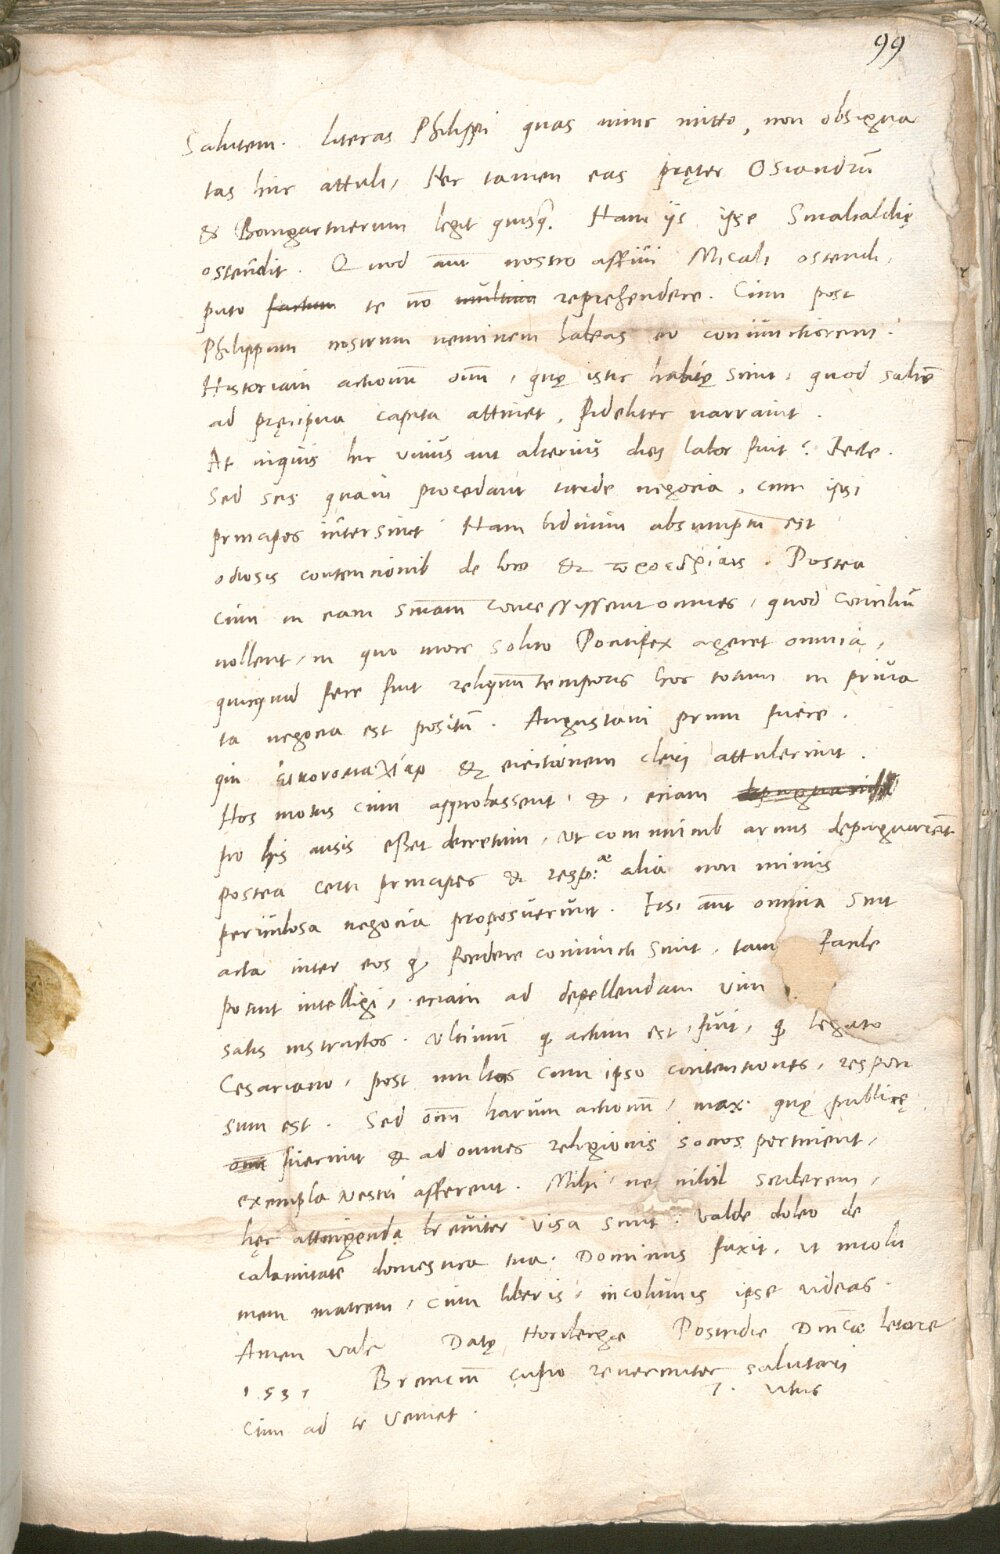 99
Salutem. Literas Philippi quas nunc mitto, non obsigna
tas huc attuli, Nec tamen eas pręter Osiandrū
& Bomgartnerum legit quisq̃. Nam iis ipse Smalcaldię
ostendit. Quod aūt nostro affini Micali ostendi,
puto factum te nō multum reprehendere. Cum post
Philippum nostrum neminem habeas eo coniunctiorem.
Historiam actionū oīm, quę istic habitę sunt, quod saltē
ad pręcipua capita attinet, fideliter narrauit.
At inquis hic unius aut alterius diei labor fuit? Recte.
Sed scis quam procedant tarde negocia, cum ipsi
principes intersint. Nam biduum absumptū est
odiosis contencionib de loco & προεδρίαις. Postea
cum in eam sn̄iam concessissent omnes, quod Conciliū
nollent, in quo more solito Pontifex ageret omnia,
quicquid fere fuit reliquū temporis hoc totum in priua
ta negocia est positū. Augustani primi fuere.
qui & eiectionem cleri attulerunt.
Hos motus cum approbassent, &, eciam depugnarēt
pro his ausis esset decretum, ut communib armis depugnarēt
postea certi principes & resp: alia non minus
periculosa negocia proposuerunt. Etsi aūt omnia sint
acta inter eos qui foedere coniuncti sunt, tam facile
possunt intelligi, eciam ad depellendam uim
satis instructos. Ultimū quod actum est, fuit, quod legato
Cesariano, post multas cum ipso contentiones, respon
sum est. Sed oīm harum actionū, max. quę publicę
omīs fuerunt & ad omnes religionis socios pertinent,
exempla nostri afferent. Mihi, ne nihil scriberem,
hęc attingenda breuiter uisa sunt. Valde doleo de
calamitate domestica tua. Dominus faxit, ut incolu
mem matrem, cum liberis, incolumis ipse uideas.
Amen Vale Datę Noribergę Postridie Dn̄icę letare
1531 Brencium cupio reuerenter salutari
T. Vitus
cum ad te veniet.